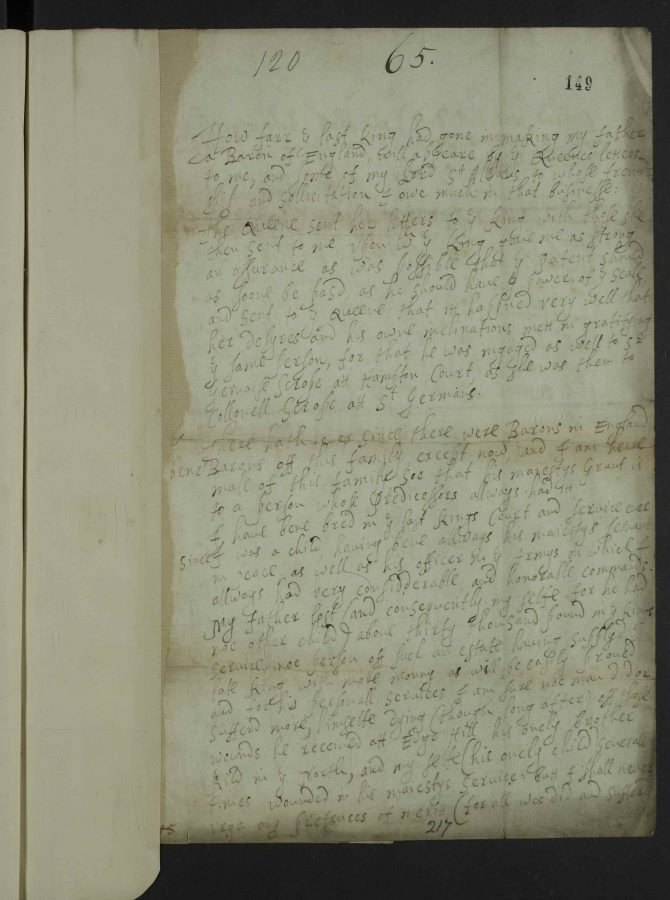 120 65.
149
How farr ye last King had gone in making my father
a Baron of England, will appeare by ye Queenes letters
to me, and some of my Lord St Albans, to whose freind
ship and sollicitation I owe much in that businesse.
The Queene sent her letters to ye King with those she
then sent to me upon wch ye King gave me as strong
an assurance as was possible that ye Patent should
as soone be past as he should have ye power of ye Seale
and sent to ye Queene that it happned very well that
her desyres and his owne inclinations mett in gratifying
ye same person, for that he was ingaged as well to Sr
Gervaise Scrope att Hampton Court as she was then to
Collonell Scrope att St Germains.
There hath ever since there were Barons in England
bene Barons off this family except now, and I am heire
male of this familie soe that his majestys Grant is
to a person whose Predicessors always had it
I have bene bred in ye last Kings Court and service ever
since I was a child having bene allways his majestys servant
in peace, as well as his officer in ye Armys in which I
allways had very considderable and honorable commands.
My father lost (and consequently my selfe for he had
noe other child) about thirty thousand pound in my Kings
service, noe person of such an estate having supplied ye
late King with more mony as will be easily proved
and for his personall services I am sure noe man did or
sufferd more, himselfe dying (though long after) off those
wounds he received att Edge Hill, his onely brother
kild in ye North, and my selfe (his onely child) severall
times wounded in his majestys service: butt I shall never
urge any pretences of merig (for all wee did and sufferd
217